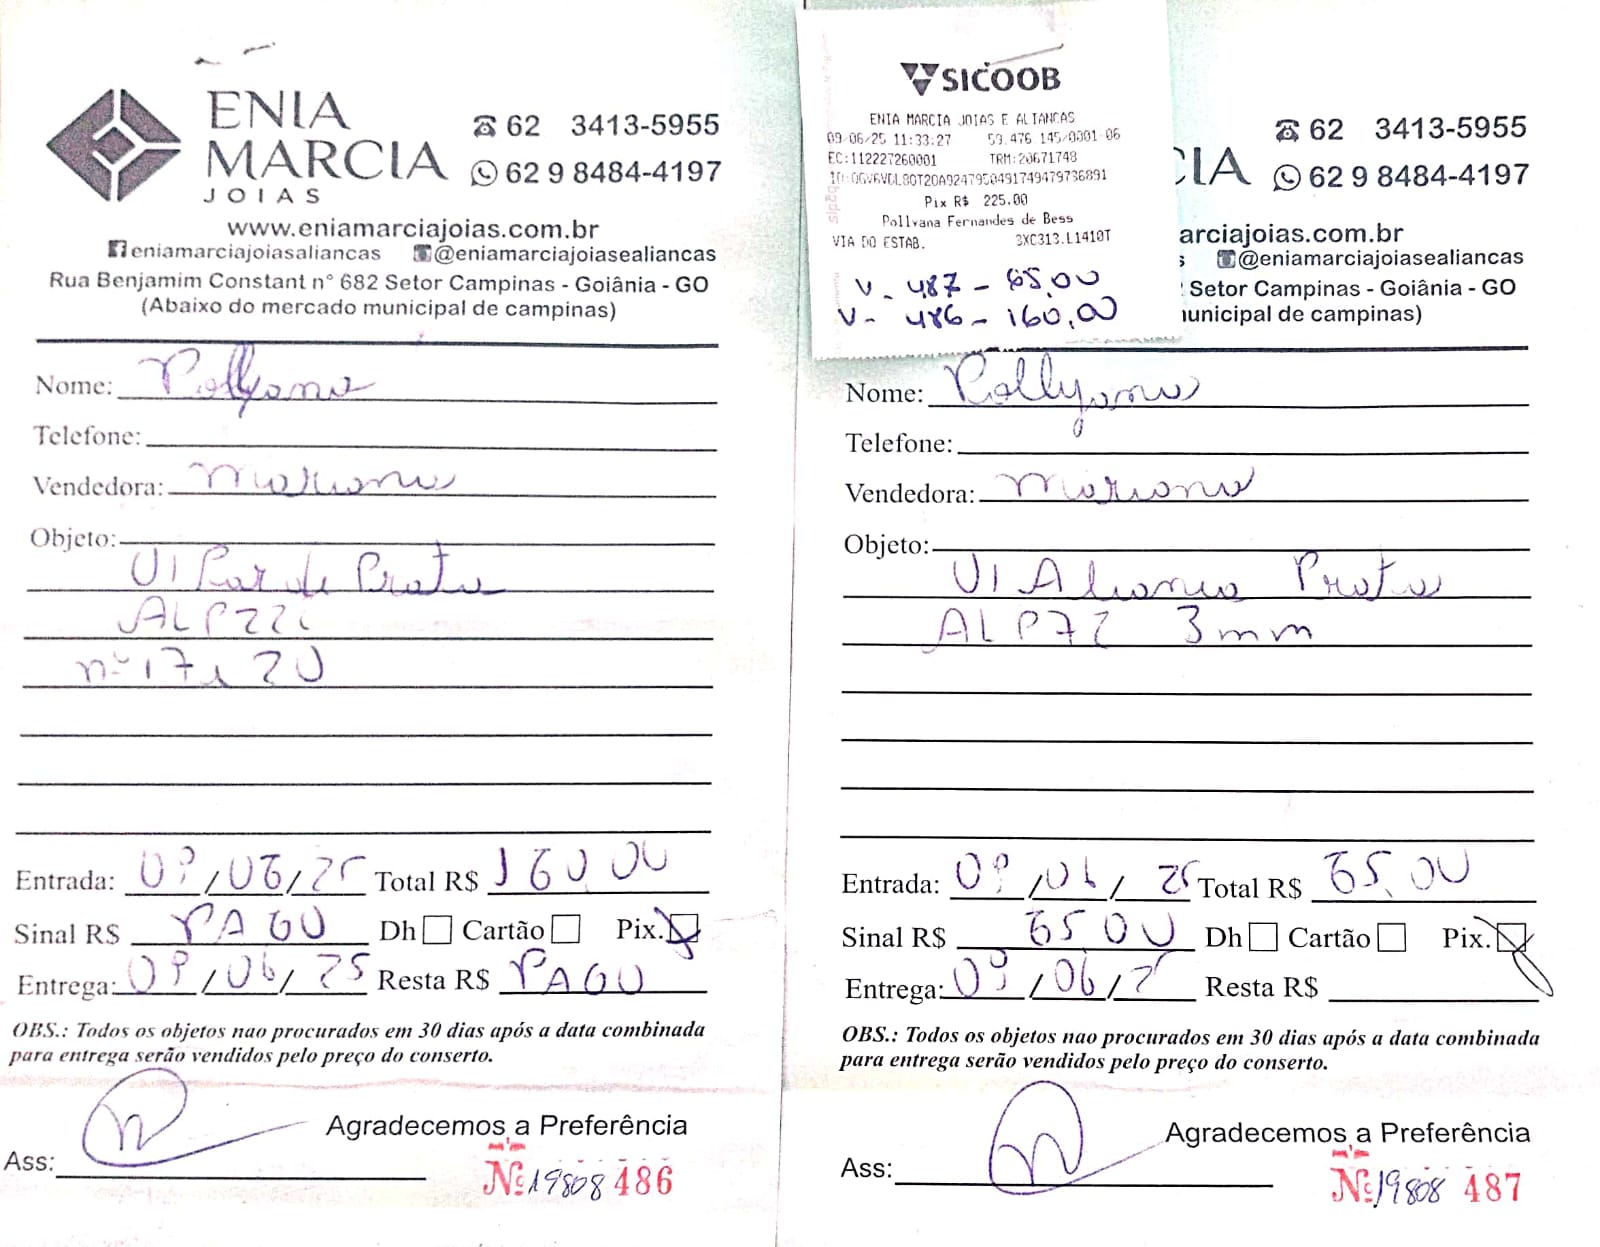 ENIA
MARCIA
JOIAS
62 3413-5955
62 9 8484-4197
www.eniamarciajoias.com.br
eniamarciajoiasaliancas @eniamarciajoiasealiancas
Rua Benjamim Constant n° 682 Setor Campinas - Goiânia - GO
(Abaixo do mercado municipal de campinas)
Nome: Pollyana
Telefone:
Vendedora: Mariana
Objeto:
01 Par de Prata
ALP22C
nº 17 e 20
Entrada: 09/06/25 Total R$ 160,00
Sinal R$ PAGO Dh Cartão Pix.
Entrega: 09/06/25 Resta R$ PAGO
OBS.: Todos os objetos nao procurados em 30 dias após a data combinada
para entrega serão vendidos pelo preço do conserto.
Agradecemos a Preferência
Ass:
Nº 19808 486
SICOOB
ENIA MARCIA JOIAS E ALIANCAS
09-06/25 11:33:27 59.476 145/0001-06
EC:112227260001 TRM:20671748
Pix R$ 225.00
Pollyana Fernandes de Bess
VIA DO ESTAB. 3XC313.L1410T
V - 487 - 65,00
V - 486 - 160,00
62 3413-5955
CIA 62 9 8484-4197
arciajoias.com.br
s @eniamarciajoiasealiancas
Setor Campinas - Goiânia - GO
unicipal de campinas)
Nome: Pollyana
Telefone:
Vendedora: Mariana
Objeto:
01 Aliança Prata
ALP72 3mm
Entrada: 09/06/25 Total R$ 65,00
Sinal R$ 65,00 Dh Cartão Pix.
Entrega: 09/06/25 Resta R$
OBS.: Todos os objetos nao procurados em 30 dias após a data combinada
para entrega serão vendidos pelo preço do conserto.
Agradecemos a Preferência
Ass:
Nº 19808 487